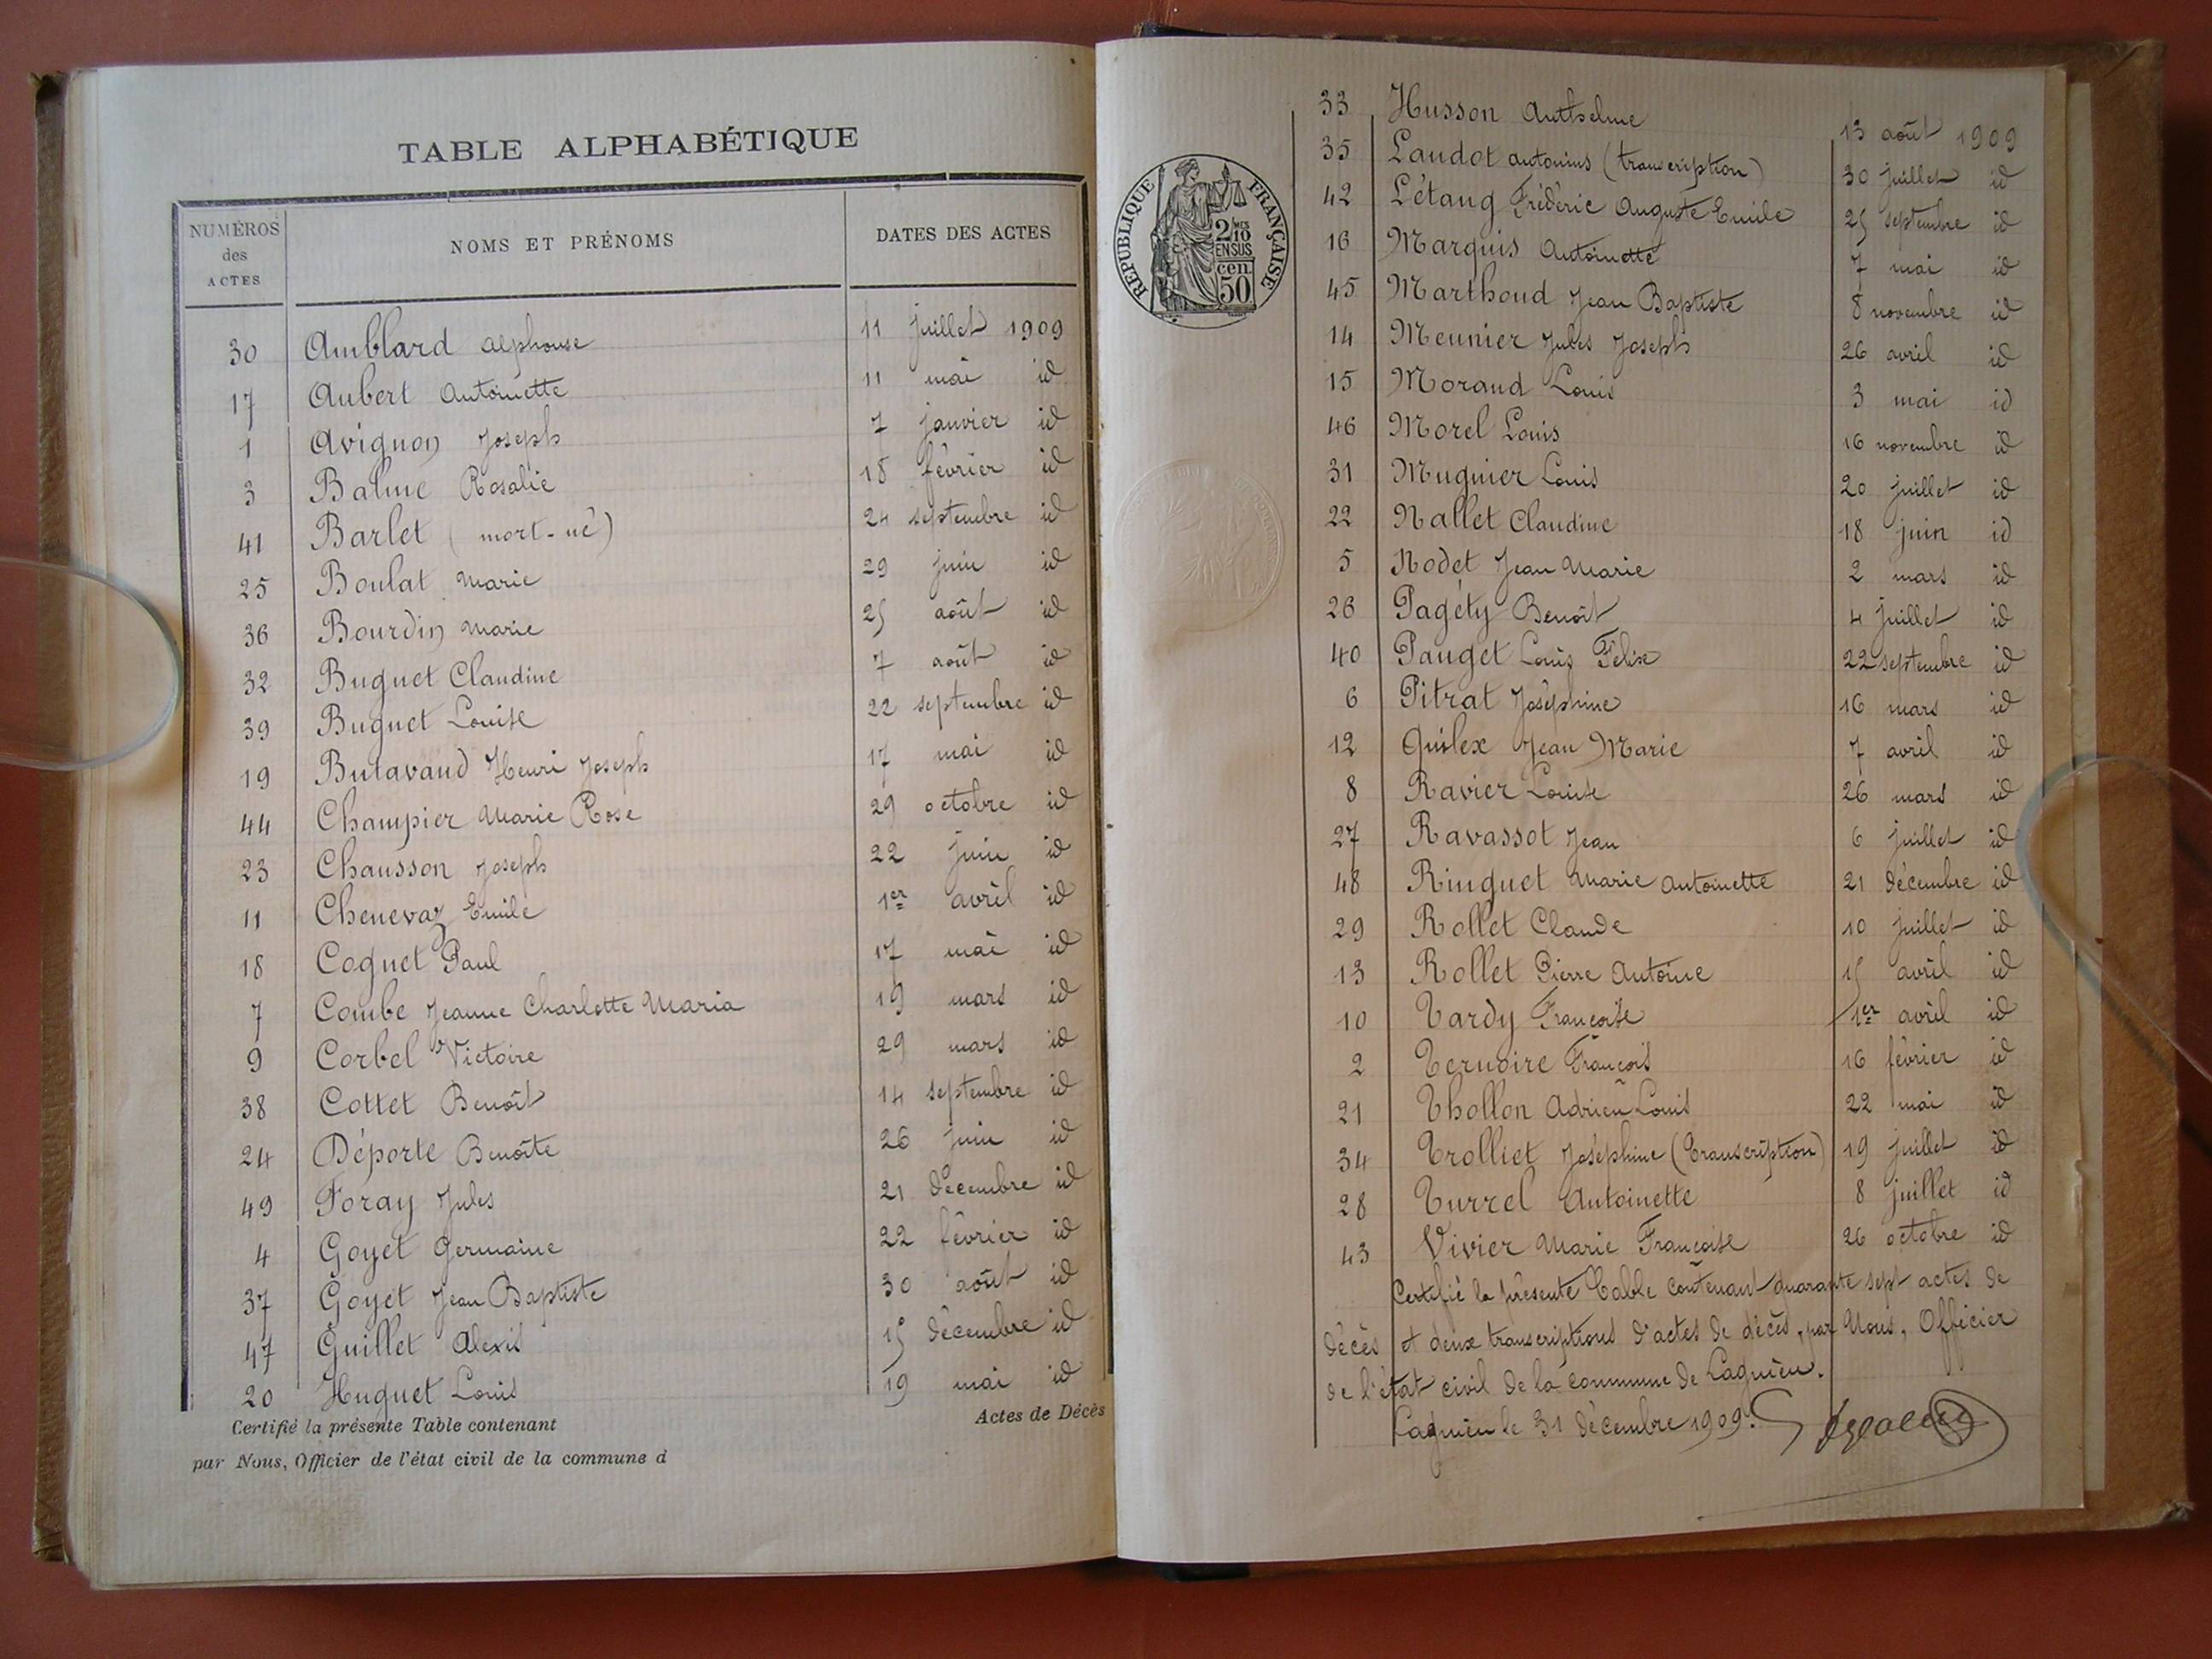 TABLE ALPHABÉTIQUE
NUMÉROS des ACTES NOMS ET PRÉNOMS DATES DES ACTES
30 Amblard Alphonse 11 juillet 1909
17 Aubert Antoinette 11 mai id
1 Avignon Joseph 7 janvier id
3 Balme Rosalie 18 février id
41 Barlet (mort-né) 24 septembre id
25 Boulat Marie 29 juin id
36 Bourdin Marie 25 août id
32 Buguet Claudine 7 août id
39 Buguet Louise 22 septembre id
19 Butavand Henri Joseph 17 mai id
44 Champier Marie Rose 29 octobre id
23 Chausson Joseph 22 juin id
11 Chenevaz Emile 1er avril id
18 Coquet Paul 17 mai id
7 Combe Jeanne Charlotte Maria 19 mars id
9 Corbel Victoire 29 mars id
38 Cottet Benoît 14 septembre id
24 Déporte Benoîte 26 juin id
49 Foray Jules 21 décembre id
4 Goyet Germaine 22 février id
37 Goyet Jean Baptiste 30 août id
47 Guillet Alexis 15 décembre id
20 Huguet Louis 19 mai id
Certifié la présente Table contenant Actes de Décès
par Nous, Officier de l'état civil de la commune d
REPUBLIQUE FRANÇAISE
2/10 MES
EN SUS
cen.
50
33 Husson Anthelme 13 août 1909
35 Landot Antonins (transcription) 30 juillet id
42 Létang Frédéric Auguste Emile 25 septembre id
16 Marquis Antoinette 7 mai id
45 Marthoud Jean Baptiste 8 novembre id
14 Meunier Jules Joseph 26 avril id
15 Morand Louis 3 mai id
46 Morel Louis 16 novembre id
31 Mugnier Louis 20 juillet id
22 Nallet Claudine 18 juin id
5 Nodet Jean Marie 2 mars id
26 Pagéty Benoît 4 juillet id
40 Pauget Louis Félix 22 septembre id
6 Pitrat Joséphine 16 mars id
12 Quilex Jean Marie 7 avril id
8 Ravier Louise 26 mars id
27 Ravassot Jean 6 juillet id
48 Ringuet Marie Antoinette 21 décembre id
29 Rollet Claude 10 juillet id
13 Rollet Pierre Antoine 15 avril id
10 Tardy Françoise 1er avril id
2 Ternoire François 16 février id
21 Thollon Adrien Louis 22 mai id
34 Trolliet Joséphine (Transcription) 19 juillet id
28 Turrel Antoinette 8 juillet id
43 Vivier Marie Françoise 26 octobre id
Certifié la présente Table contenant quarante sept actes de
décès et deux transcriptions d'actes de décès, par Nous, Officier
de l'état civil de la commune de Lagnieu.
Lagnieu le 31 décembre 1909.